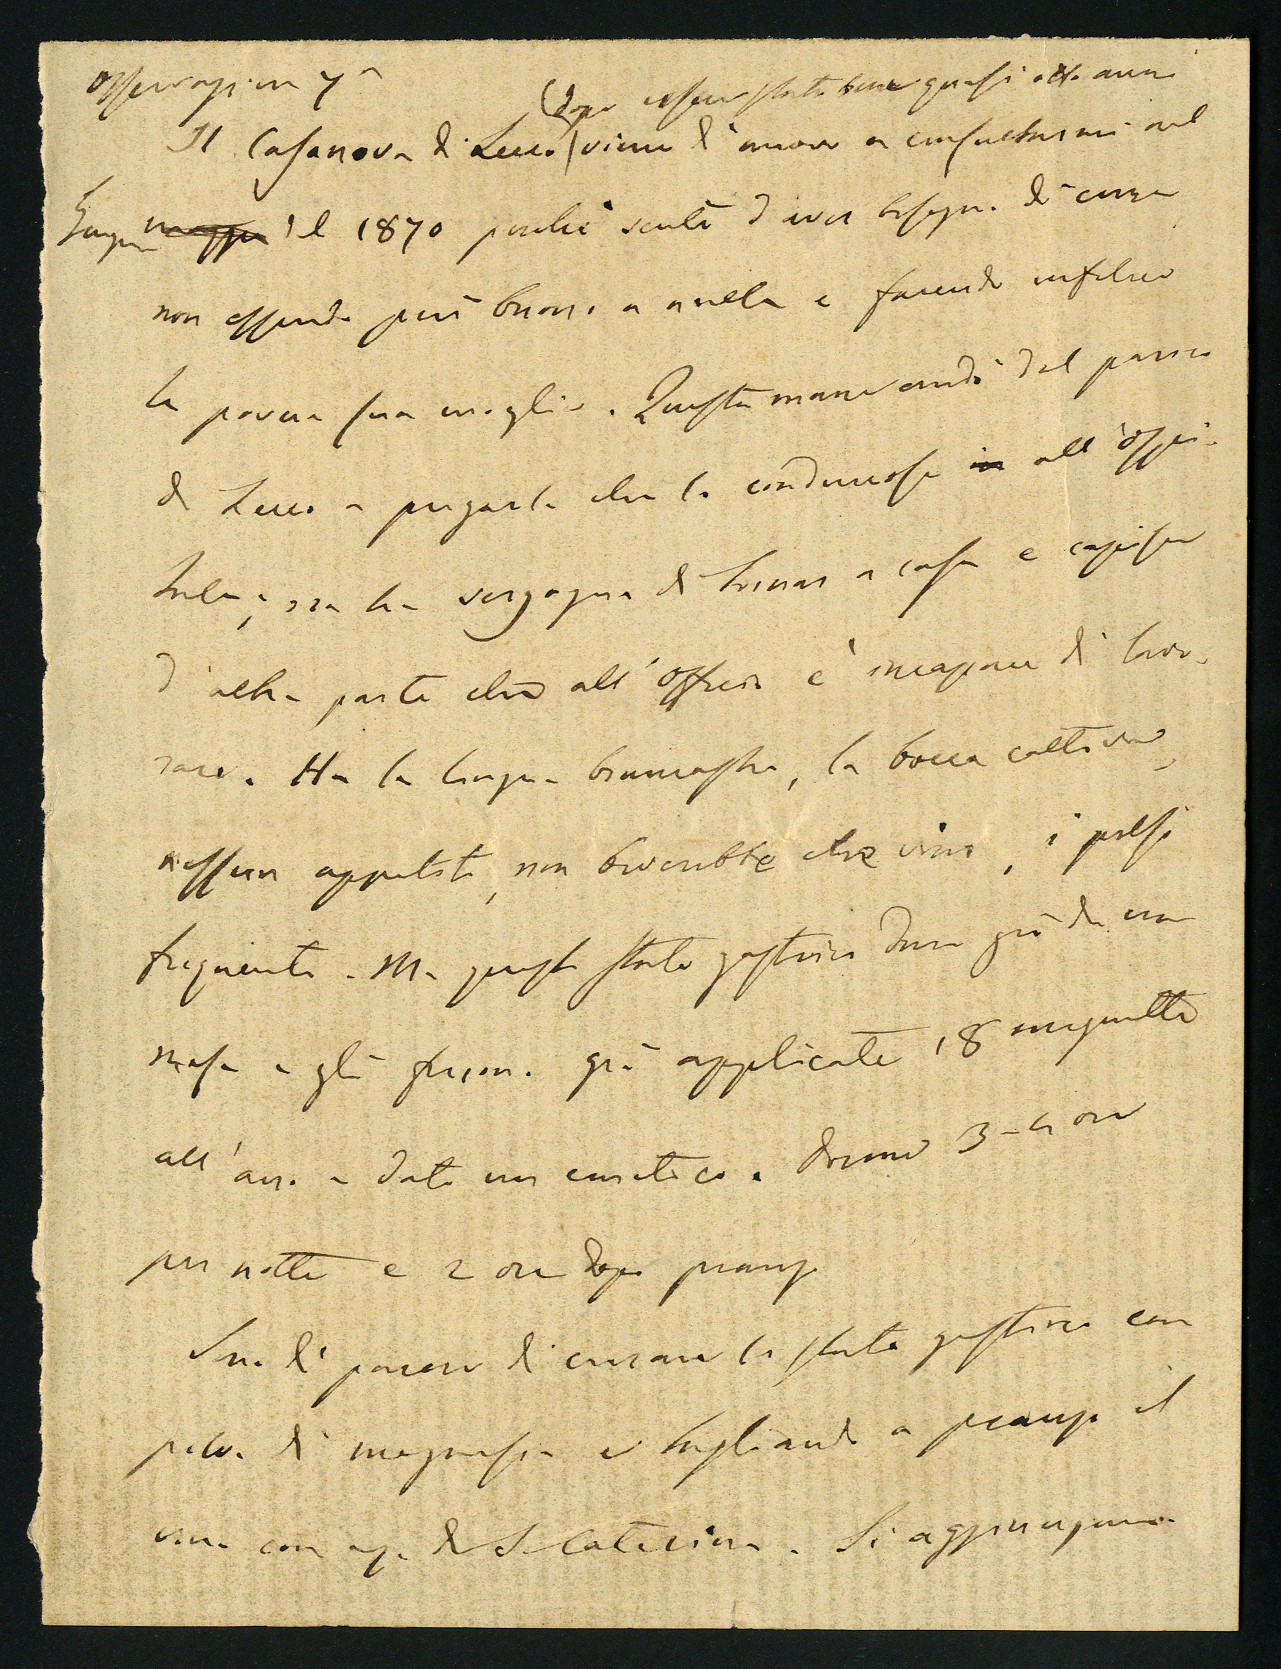 Osservazione 7ª
(dopo essere stato bene quasi otto anni
Il Casanova di Lecco) viene di nuovo a consultarmi nel
Giugno maggio del 1870 perchè sente d'aver bisogno di cura
non essendo più buono a nulla e facendo infelice
la povera sua moglie. Questa mane andò dal parroco
di Lecco a pregarlo che lo conducesse in all'ospi-
tale; ma ha vergogna di tornar a casa e capisce
d'altra parte che all'officio è incapace di lavo-
rare. Ha la lingua biancastra, la bocca cattiva,
nessun appetito, non beverebbe che vino, i polsi
frequenti. Ma questo stato gastrico dura già da un
mese e gli furono già applicate 18 mignatte
all'ano e dato un emetico. Dorme 3-4 ore
per notte e 2 ore dopo pranzo
Sono di parere di curare lo stato gastrico con
polv. di magnesia e tagliando a pranzo il
vino con acq. di S. Caterina. Si aggiungano